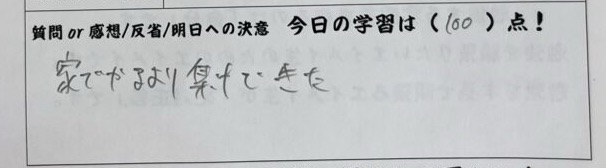 質問 or 感想/反省/明日への決意 今日の学習は（100）点！
家でやるより 集中できた